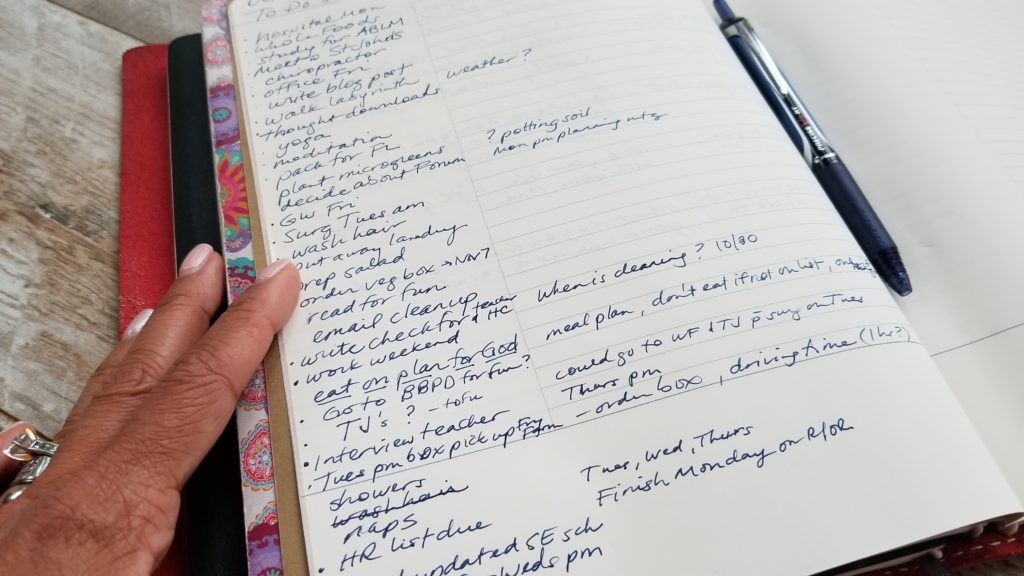 To Do
· hospital Mon
· Whole Foods
· study for ABLM
· Meet @ St John's
· chiropractor
· office Fri
· write blog post
· walk labyrinth weather?
· thought downloads
· yoga
· meditation
· pack for FL
· plant microgreens ? potting soil
· decide about Forum Mon pm planning mtg
· GW Fri
· Surg Tues am
· wash hair
put away landing
prep salad
order veg box → Nov 7
read for fun
email cleanup When is cleaning? 10/30
· write check for teacher & HC
· work weekend meal plan, don't eat if not on list,
eat on plan for God
Go to BBPD for fun? could go to WF & TJ p̄ surg on Tues
TJ's? - tofu Thurs pm
· Interview teacher - order box, driving time (1 hr?)
· Tues pm box pick up Fri
showers
wash hair Tues, Wed, Thurs
naps Finish Monday on R/OR
· HR list due
updated SE sch
Weds pm